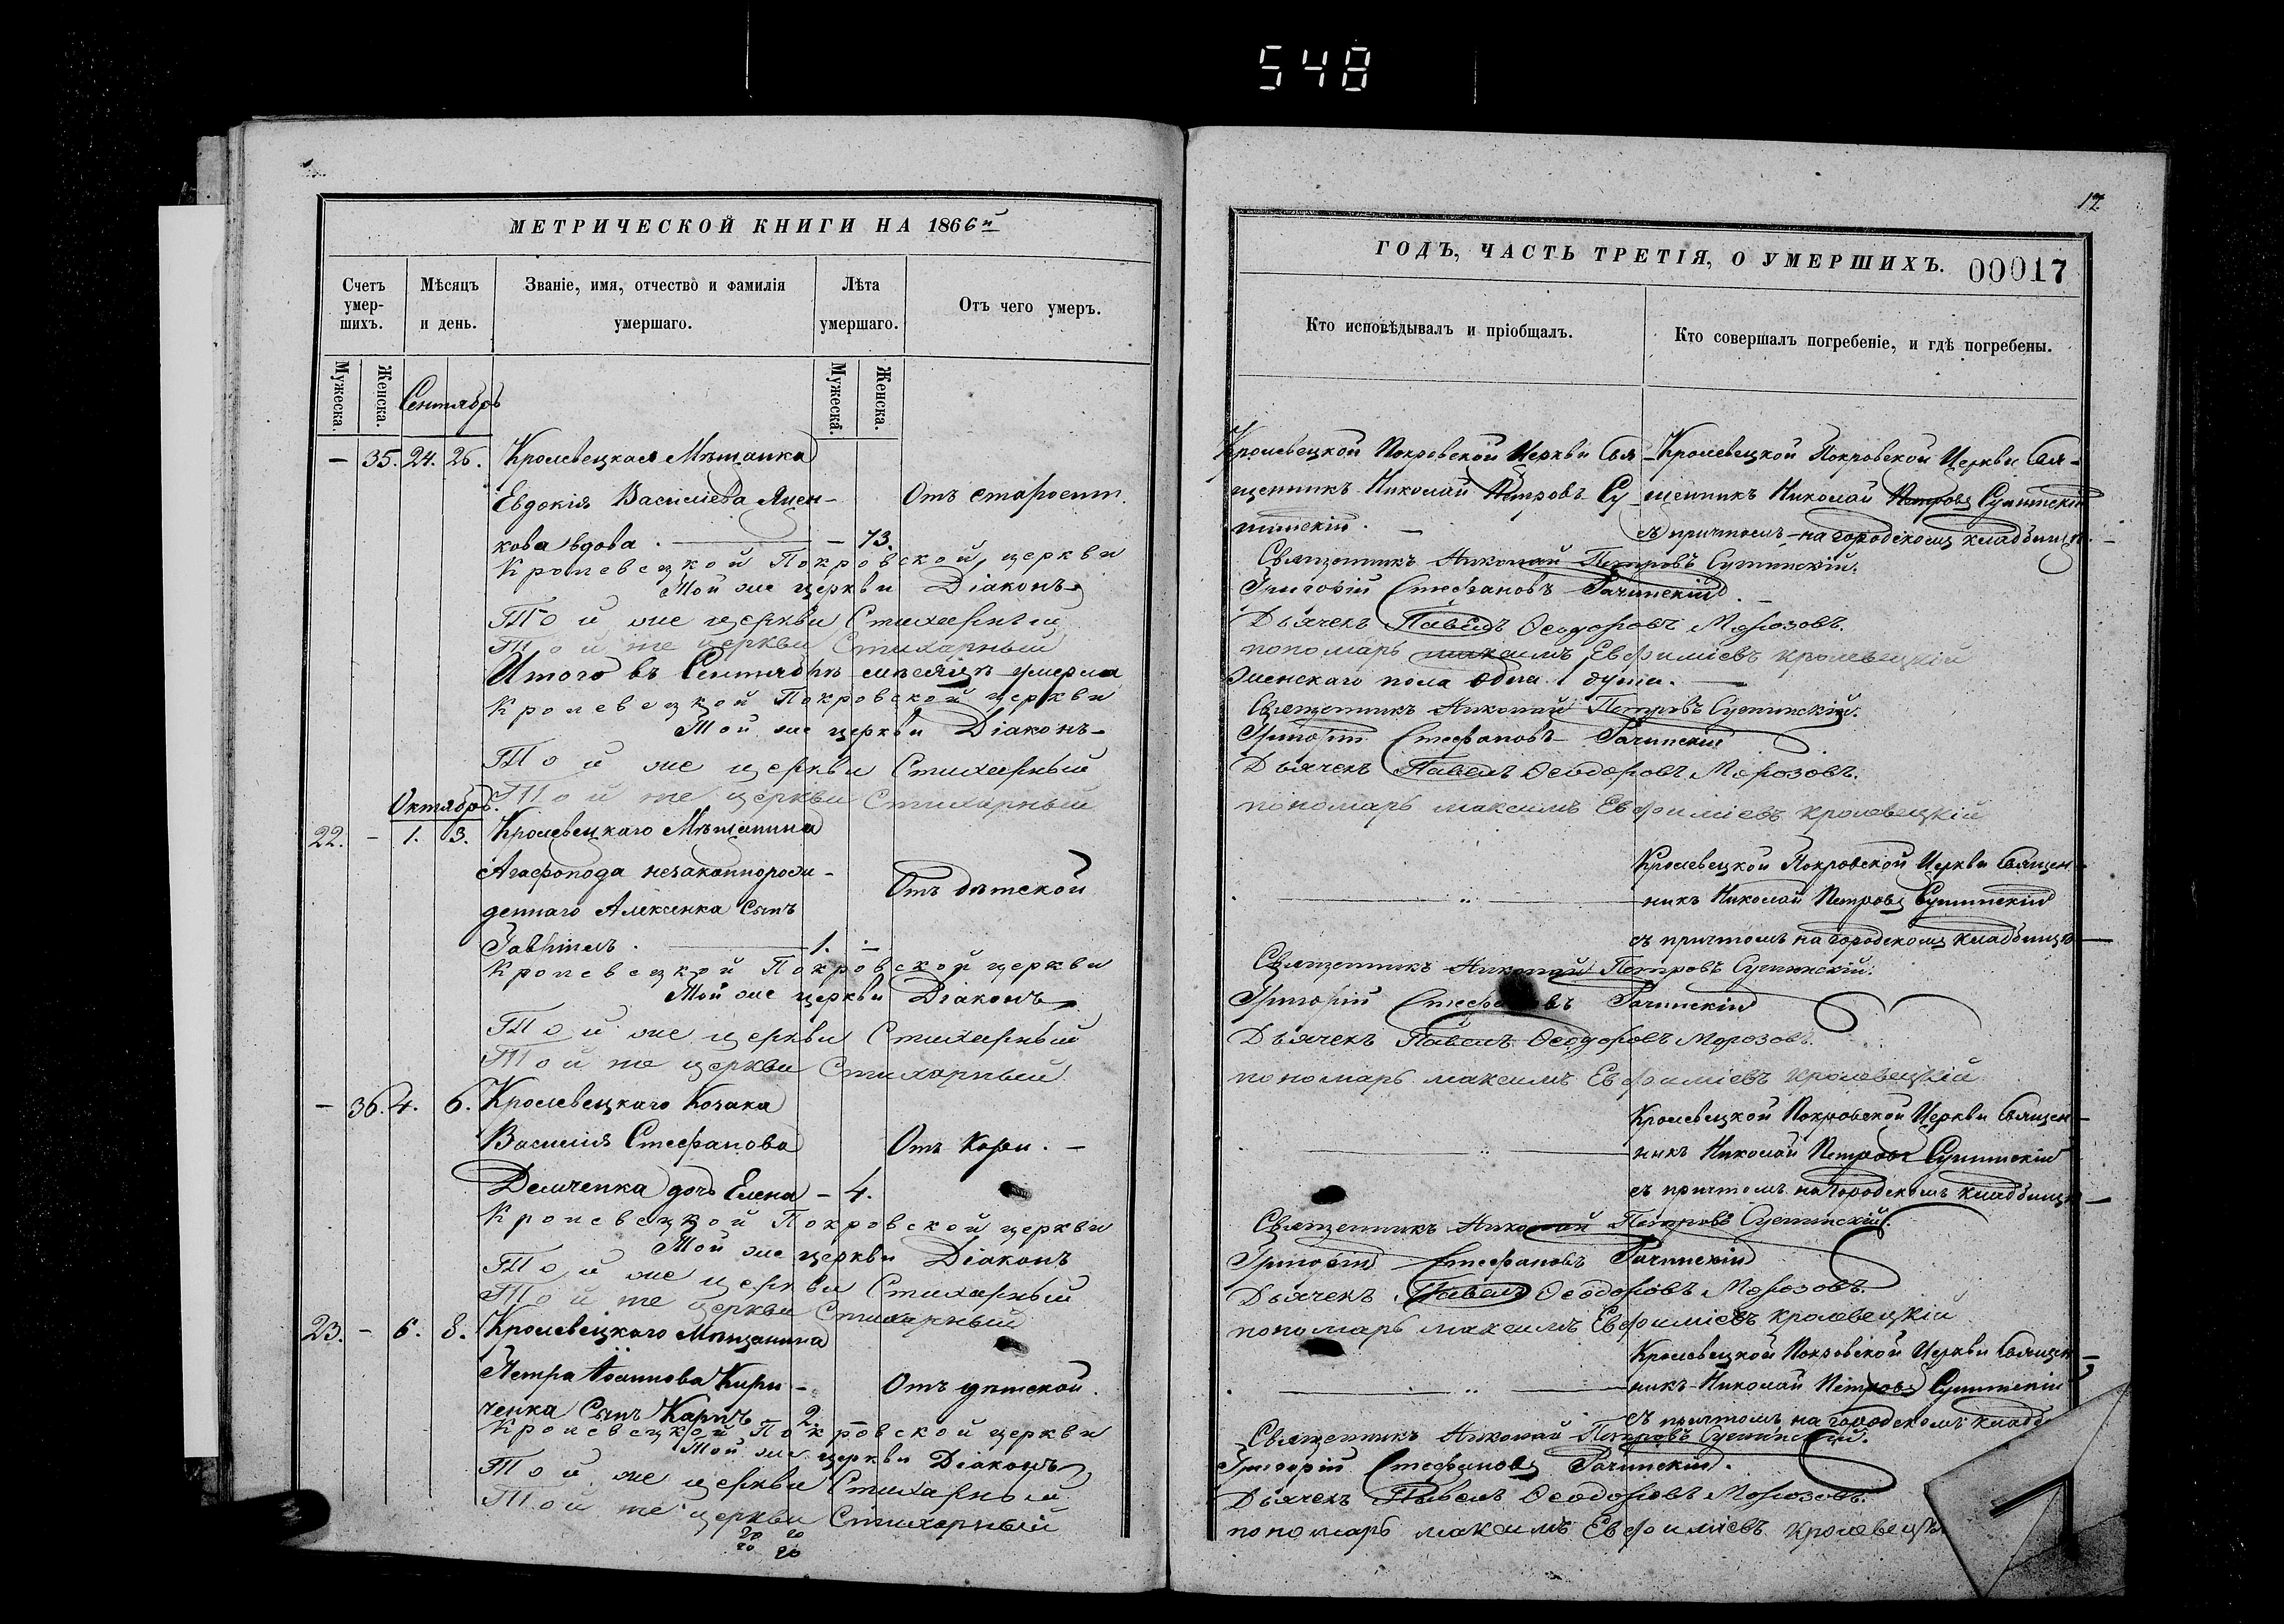 548
МЕТРИЧЕСКОЙ КНИГИ НА 1866й
Счетъ умер-шихъ.
Мѣсяцъ и день.
Званіе, имя, отчество и фамилія умершаго.
Лѣта умершаго.
Отъ чего умеръ.
Мужеска.
Женска.
Мужеска.
Женска.
Сентябрь
— 35. 24. 26. Кролевецкая Мѣщанка
Евдокія Василіева
Отъ старости.
кова вдова. — 73.
Кролевецкой Покровской церкви
Той же церкви Діаконъ
Той же церкви Стихарный
Той же церкви Стихарный
Итого въ Сентябрѣ мѣсяцѣ умерла
Кролевецкой Покровской церкви
Той же церкви Діаконъ
Той же церкви Стихарный
Той же церкви Стихарный
Октябрь.
22. — 1. 3. Кролевецкаго Мѣщанина
Агафопода незаконнорож-
деннаго Алексенка Сынъ
Отъ дѣтской
1. —
Кролевецкой Покровской церкви
Той же церкви Діаконъ
Той же церкви Стихарный
Той же церкви Стихарный
— 36. 4. 6. Кролевецкаго Козака
Василія Стефанова
Отъ Кори. —
Демченка дочь Елена — 4.
Кролевецкой Покровской церкви
Той же церкви Діаконъ
Той же церкви Стихарный
Той же церкви Стихарный
23. — 6. 8. Кролевецкаго Мѣщанина
Петра Іоаннова Кири-
Отъ дѣтской.
ченка Сынъ Карпъ 2. —
Кролевецкой Покровской церкви
Той же церкви Діаконъ
Той же церкви Стихарный
Той же церкви Стихарный
20 20
20 20
17.
ГОДЪ, ЧАСТЬ ТРЕТІЯ, О УМЕРШИХЪ. 00017
Кто исповѣдывалъ и пріобщалъ.
Кто совершалъ погребеніе, и гдѣ погребены.
Кролевецкой Покровской Церкви Свя-
щенникъ Николай Петровъ Су-
шинскій.
Кролевецкой Покровской Церкви Свя-
щенникъ Николай Петровъ Сушинскій
съ причтомъ на городскомъ кладбищѣ.
Священникъ Николай Петровъ Сушинскій.
Григорій Стефановъ Рачинскій.
Дьячекъ Павелъ Ѳеодоровъ Морозовъ.
пономарь максимъ Евѳиміевъ кролевецкій
женскаго пола одна 1 душа.
Священникъ Николай Петровъ Сушинскій.
Григорій Стефановъ Рачинскій
Дьячекъ Павелъ Ѳеодоровъ Морозовъ.
пономарь максимъ Евѳиміевъ кролевецкій
Кролевецкой Покровской Церкви Священ-
никъ Николай Петровъ Сушинскій
съ причтомъ на городскомъ кладбищѣ
Священникъ Николай Петровъ Сушинскій.
Григорій Стефановъ Рачинскій
Дьячекъ Павелъ Ѳеодоровъ Морозовъ.
пономарь максимъ Евѳиміевъ кролевецкій
Кролевецкой Покровской Церкви Священ-
никъ Николай Петровъ Сушинскій
съ причтомъ на городскомъ кладбищѣ
Священникъ Николай Петровъ Сушинскій.
Григорій Стефановъ Рачинскій
Дьячекъ Павелъ Ѳеодоровъ Морозовъ.
пономарь максимъ Евѳиміевъ кролевецкій
Кролевецкой Покровской Церкви Священ-
никъ Николай Петровъ Сушинскій
съ причтомъ на городскомъ кладб
Священникъ Николай Петровъ Сушинскій.
Григорій Стефановъ Рачинскій.
Дьячекъ Павелъ Ѳеодоровъ Морозовъ.
пономарь максимъ Евѳиміевъ кролевец